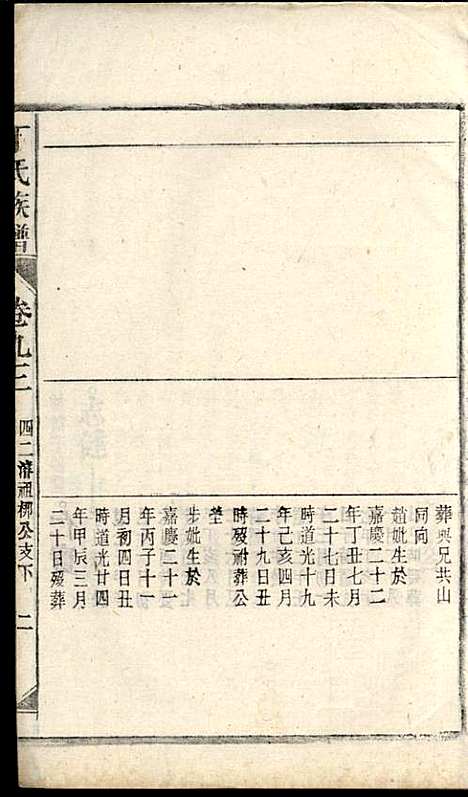 葬與兄共山
同向
趙妣生於
嘉慶二十二
年丁丑七月
二十七日未
時道光十九
年己亥四月
二十九日丑
時歿祔葬公
塋
步妣生於
嘉慶二十一
年丙子十一
月初四日丑
時道光廿四
年甲辰三月
二十日歿葬
丁氏族譜
卷九三
四二濬祖柳公支下
二